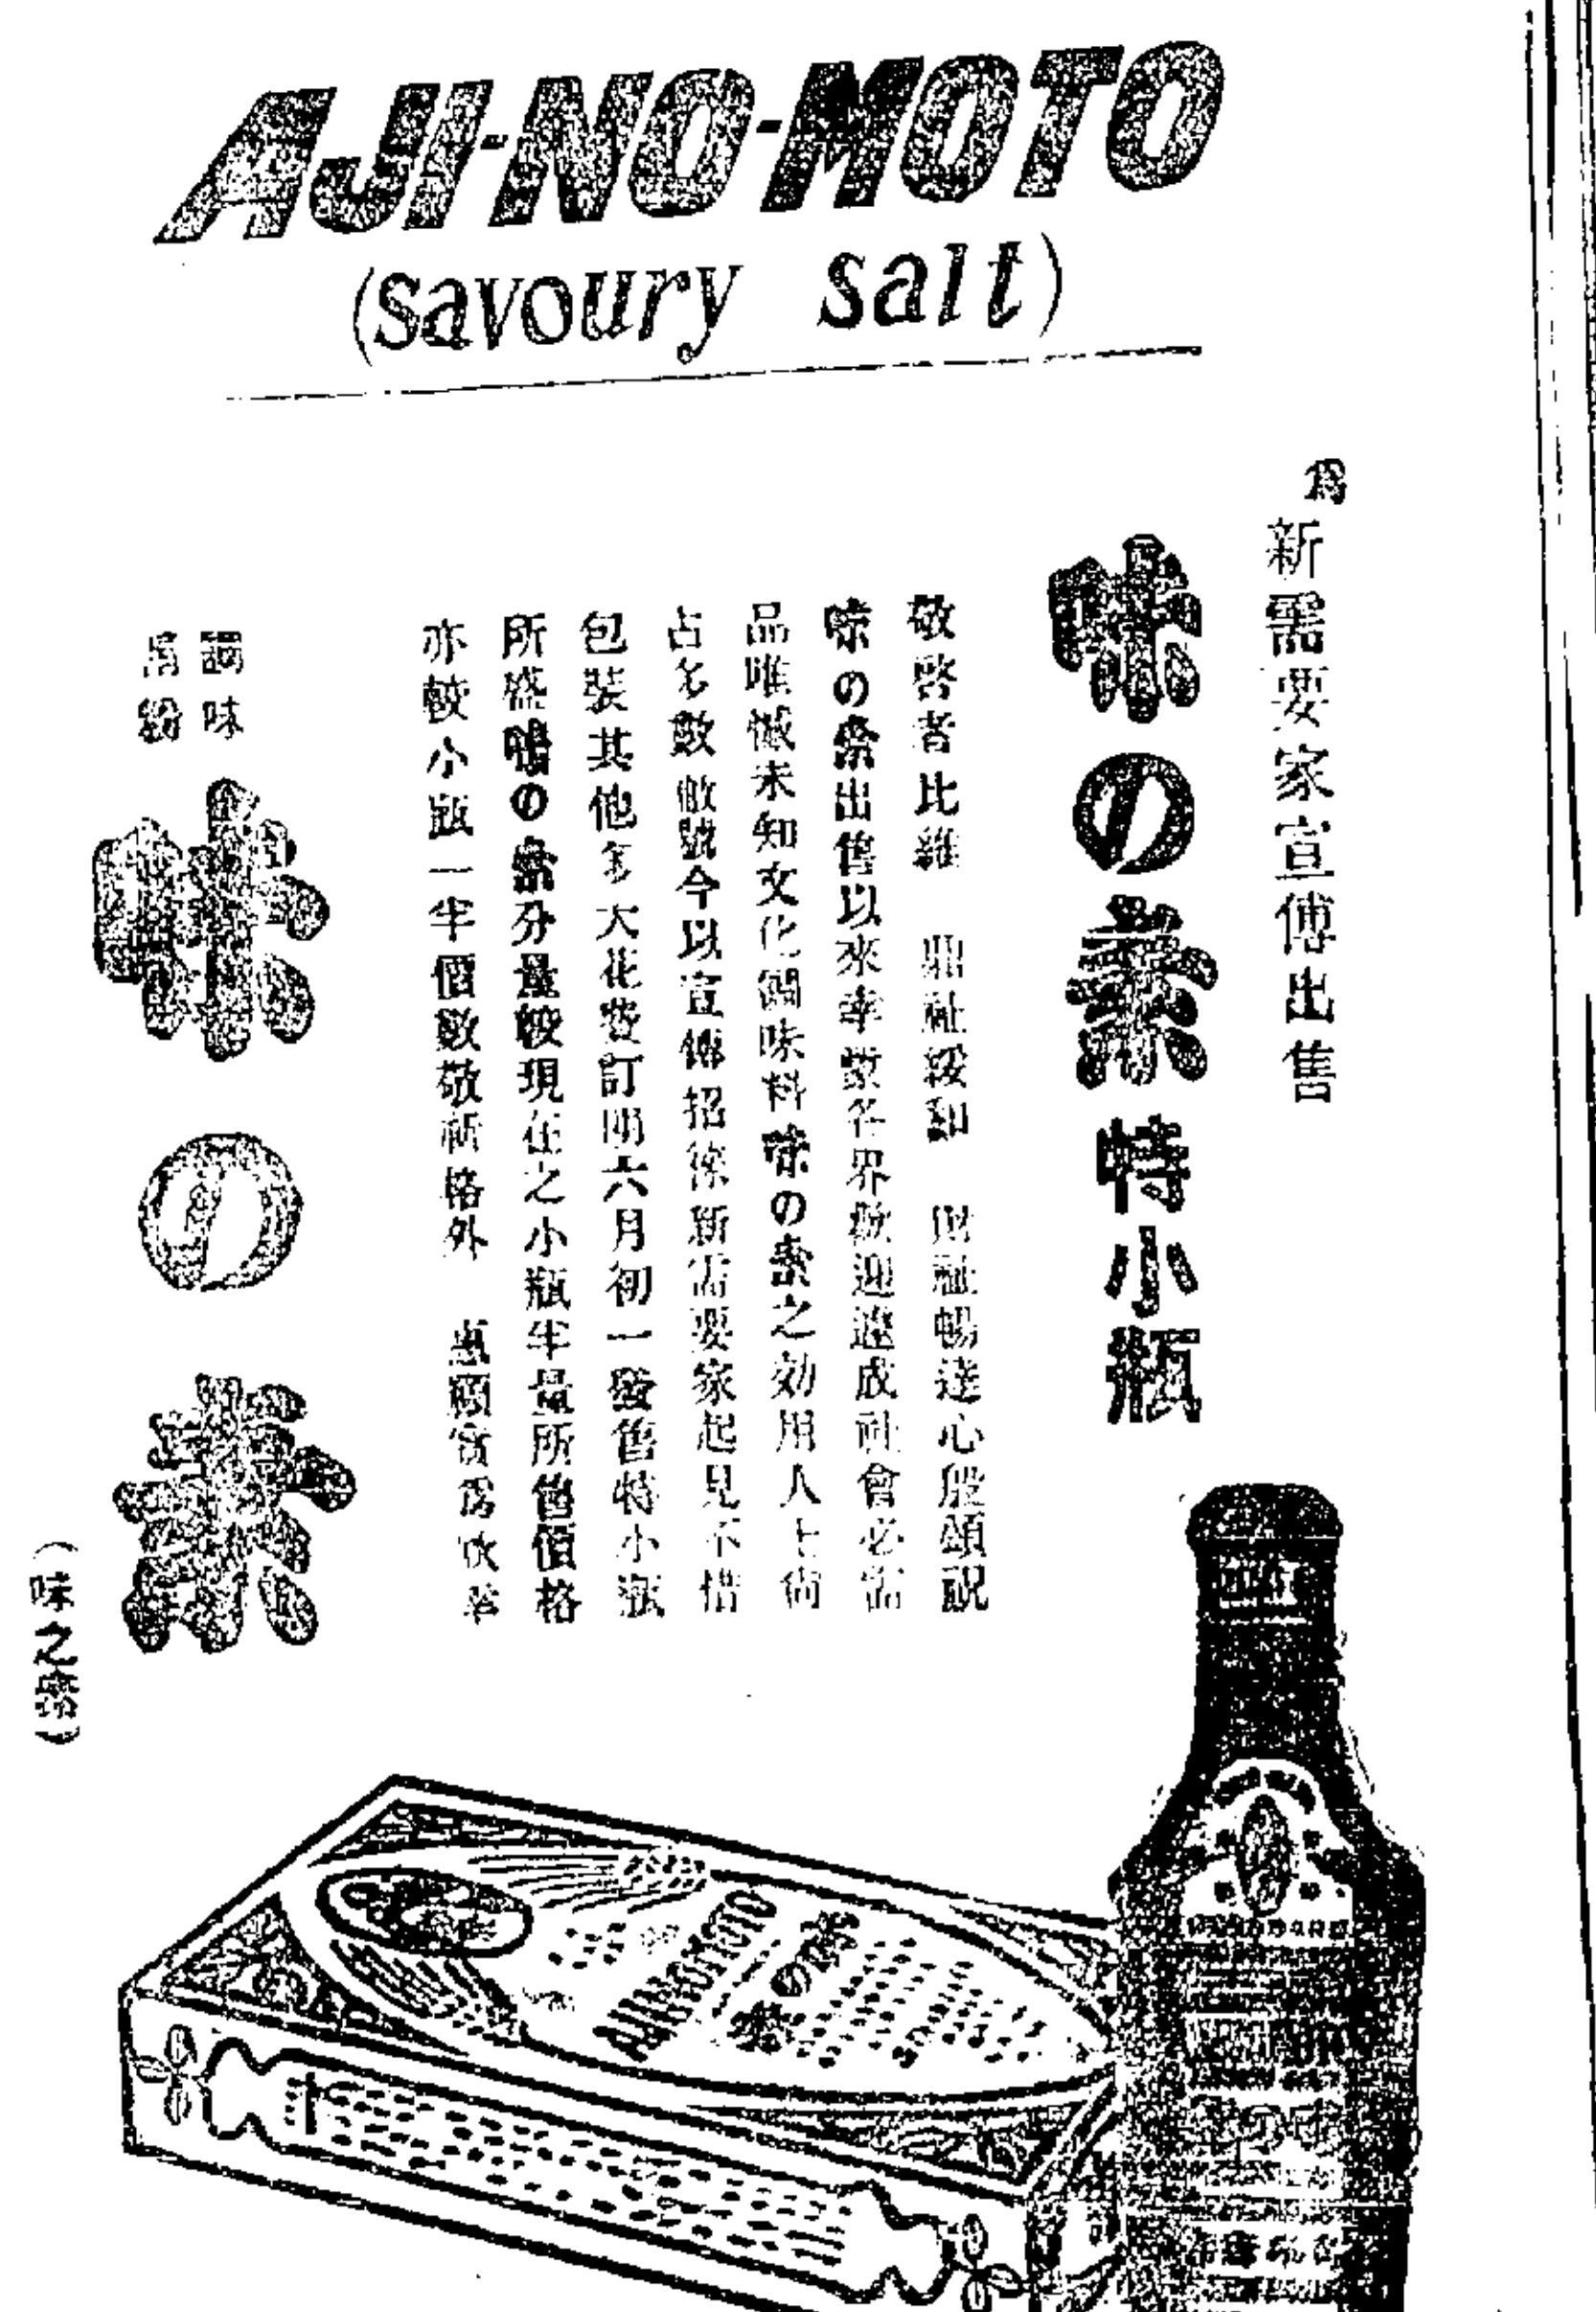 AJI-NO-MOTO
(savoury salt)
爲新需要家宣傳出售
味の素特小瓶
敬啓者比維 鼎祉綏和 財祉暢達心殷頌祝
味の素出售以來幸蒙各界歡迎遂成社會必需
品唯憾未知文化調味料味の素之効用人士尙
占多數敝號今以宣傳招徠新需要家起見不惜
包裝其他多大花費訂明六月初一發售特小瓶
所盛味の素分量較現在之小瓶半量所售價格
亦較小瓶一半價敬祈格外 惠顧實爲
調味
味の素
(味之素)
AJINOMOTO
味の素